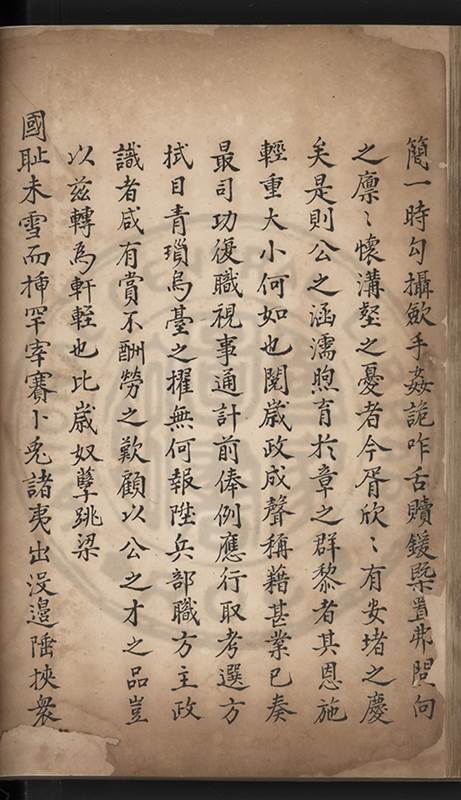 簡一時勾攝歛手姦詭咋舌贖鍰槩置弗問向
之廪〻懷溝壑之憂者今胥欣〻有安堵之慶
矣是則公之涵濡煦育於章之群黎者其恩施
輕重大小何如也閱歲政成聲稱藉甚業已奏
最司功復職視事通計前俸例應行取考選方
拭目青瑣烏臺之擢無何報陞兵部職方主政
識者咸有賞不酬勞之歎顧以公之才之品豈
以兹轉爲軒輊也比歲奴孽跳梁
國耻未雪而揷罕宰賽卜兎諸夷出没邉陲挾衆